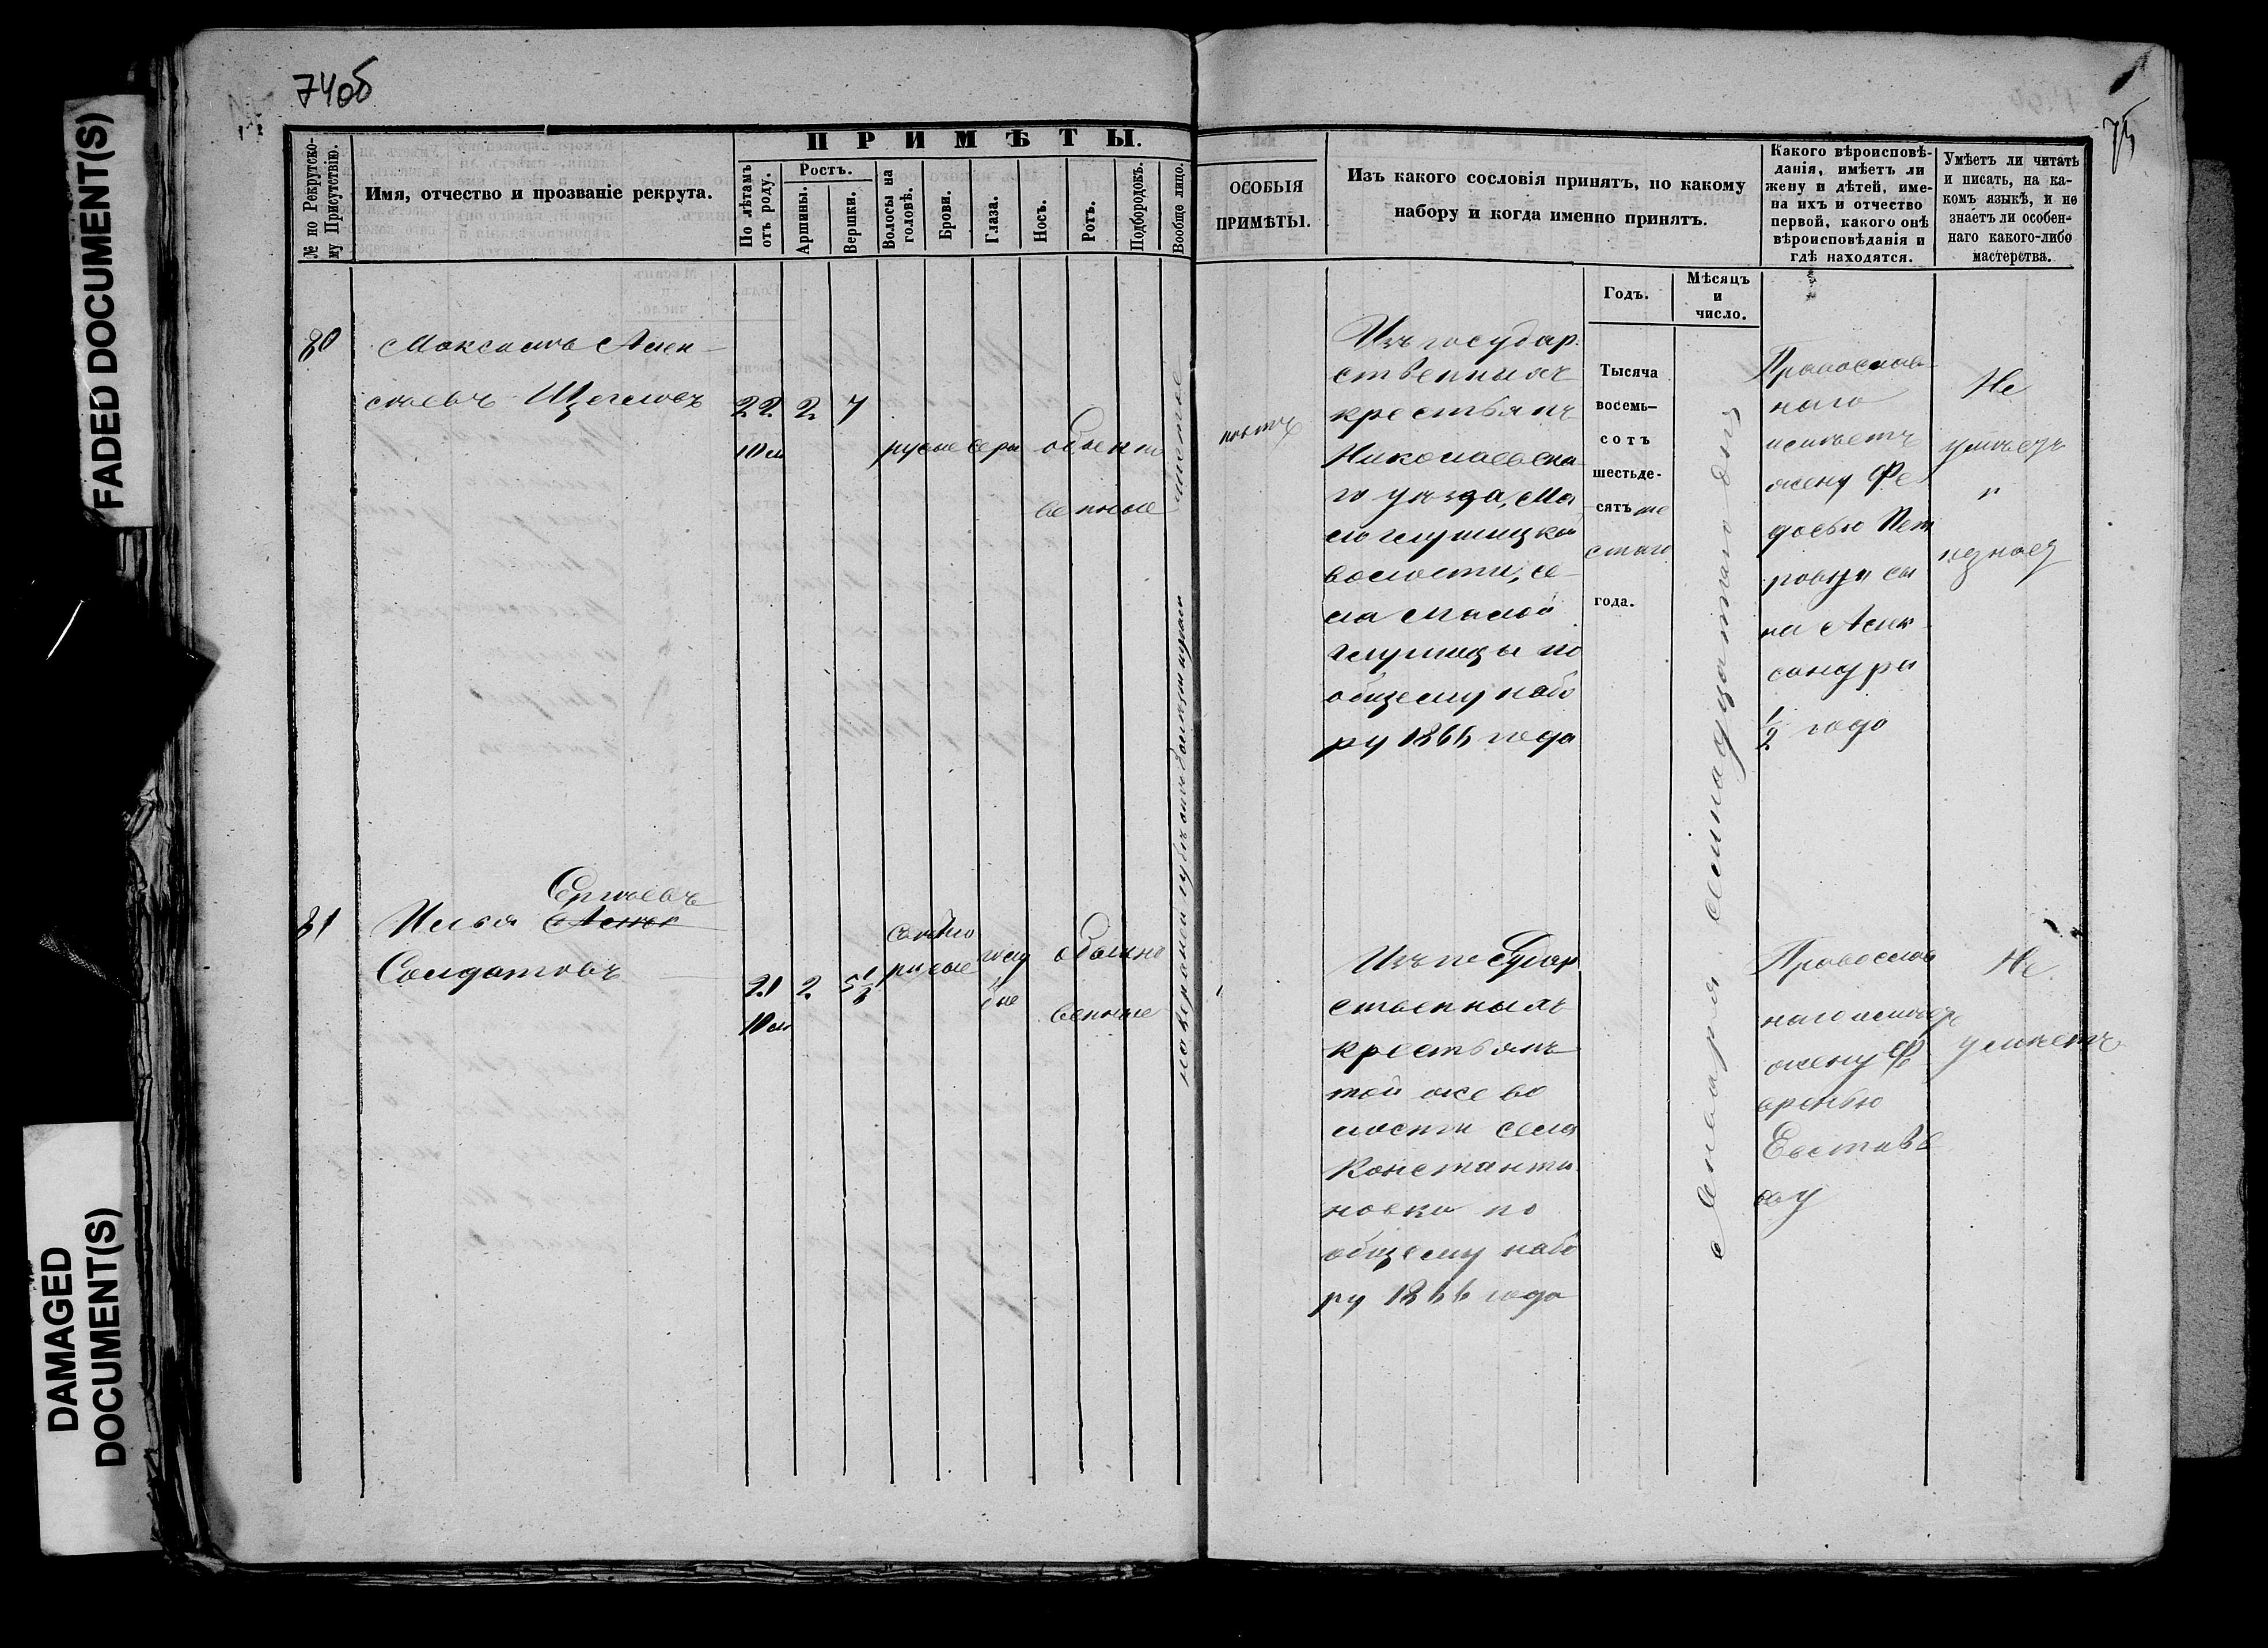 FADED DOCUMENT(S)
DAMAGED
DOCUMENT(S)
74об
75
№ по Рекрутско-
му Присутствію.
Имя, отчество и прозваніе рекрута.
ПРИМѢТЫ.
По лѣтамъ
отъ роду.
Ростъ.
Аршины.
Вершки.
Волосы на
головѣ.
Брови.
Глаза.
Носъ.
Ротъ.
Подбородокъ.
Вообще лицо.
ОСОБЫЯ
ПРИМѢТЫ.
Изъ какого сословія принятъ, по какому
набору и когда именно принятъ.
Годъ.
Мѣсяцъ
и
число.
Какого вѣроисповѣ-
данія, имѣетъ ли
жену и дѣтей, име-
на ихъ и отчество
первой, какого онѣ
вѣроисповѣданія и
гдѣ находятся.
Умѣетъ ли читать
и писать, на ка-
комъ языкѣ, и не
знаетъ ли особен-
наго какого-либо
мастерства.
80
Максимъ Алек-
сѣевъ Щегловъ
22
10 м
2
7
русые серы обыкно
венные
чистое
Изъ государ
ственныхъ
крестьянъ
Николаевска
го уѣзда, Ма
логлушицкой
волости, се-
ла Малой
Глушицы по
общему набо
ру 1866 года
Тысяча
восемь-
сотъ
шестьде-
сятъ ше
стаго
года.
Января семнадцатаго дня
Православ
наго
имѣетъ
жену Фе
досью Пет
ровну и сы
на Алек
сандра
1/2 года
Не
умѣетъ
и
незнаетъ
81
Илья Сергѣевъ
Солдатовъ
21
10 м
2
5 1/8
свѣтло
русые
голу
бые
обыкно
венные
на верхней губѣ
Изъ государ
ственныхъ
крестьянъ
той же во
лости села
Константи
новки по
общему набо
ру 1866 года
Православ
наго имѣетъ
жену Ф
Евстафье
ву
Не
умѣетъ